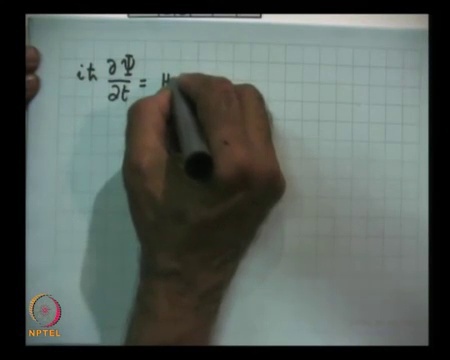 iħ ∂Ψ/∂t = H
NPTEL